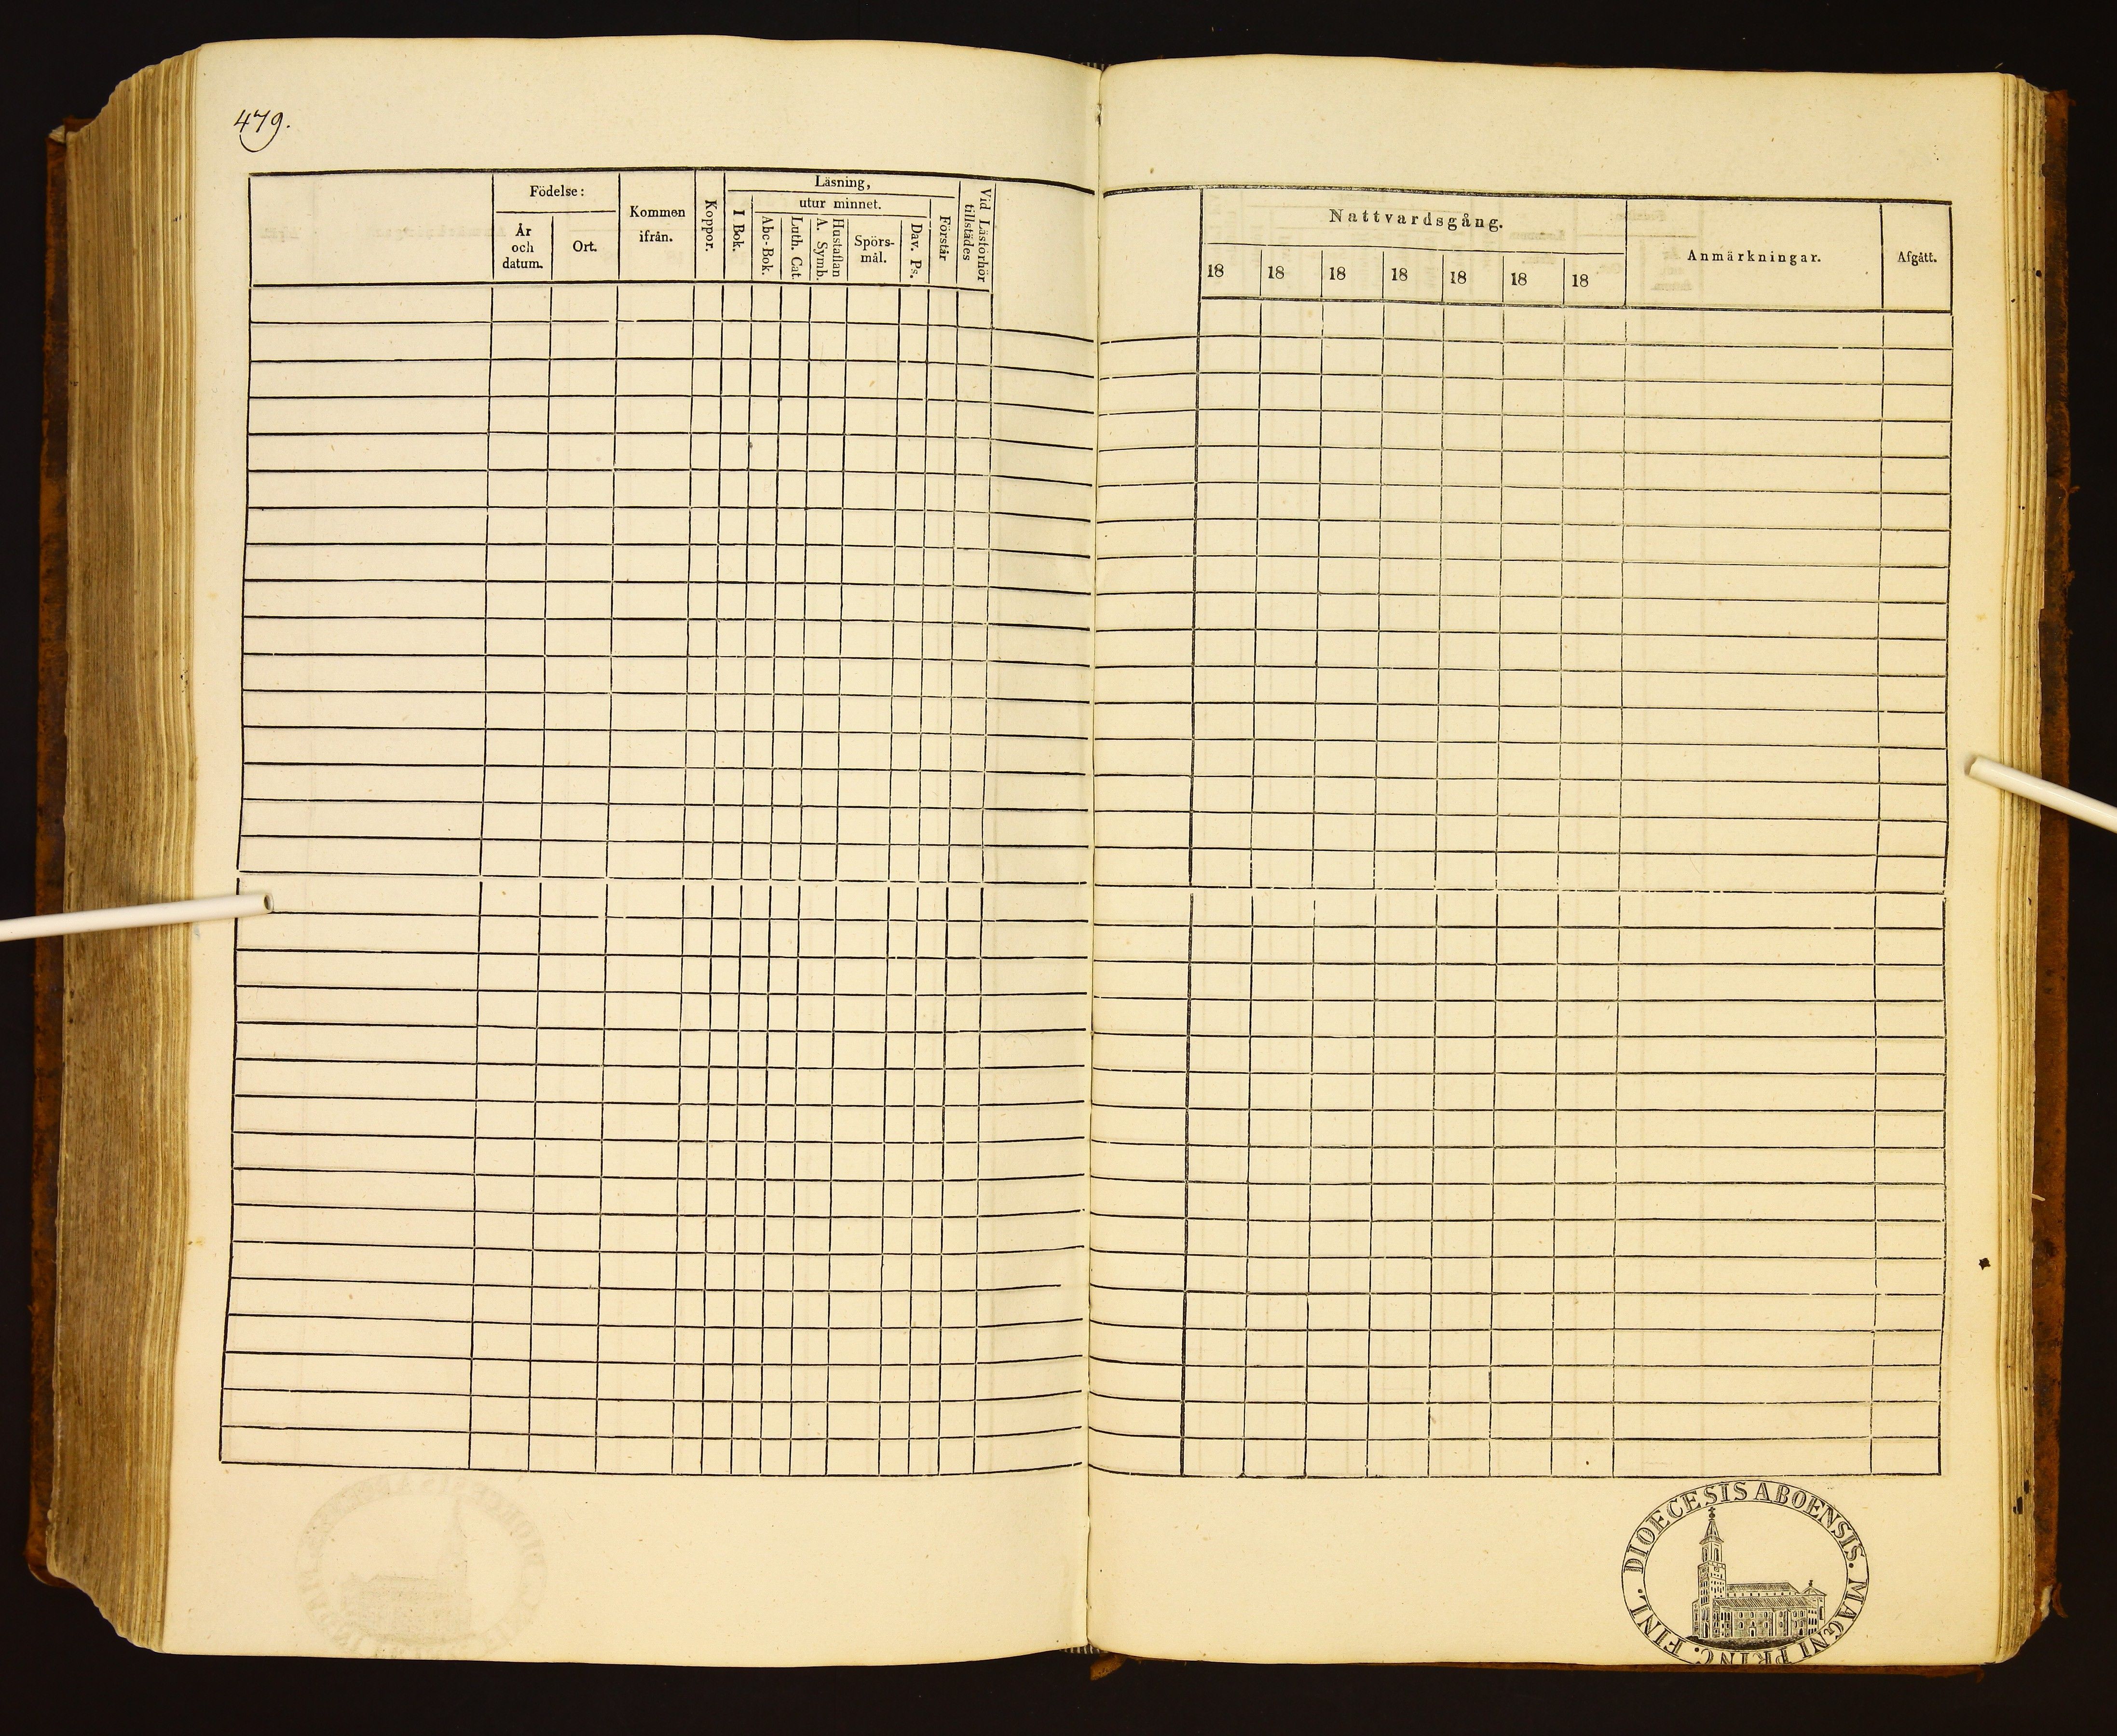 479.
Födelse:
År och datum.
Ort.
Kommen ifrån.
Koppor.
Läsning,
I Bok.
utur minnet.
Abc-Bok.
Luth. Cat.
Hustaflan
A. Symb.
Spörs-
mål.
Dav. Ps.
Förstår
Vid Läsförhör
tillstädes
Nattvardsgång.
18 18 18 18 18 18 18
Anmärkningar.
Afgått.
DIOECESIS ABOENSIS. MAGNI PRINC. FINL.